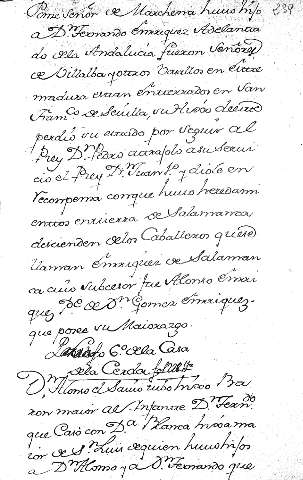 Ponze Señor de Marchena huuo hijo
a Dn Fernando Enriquez Adelanta
do de la Andalucia fueron Señores
de Villalba y otros Vasallos en Estre
madura estan enterrados en San
Franco de Seuilla, su Hijo deste
perdio su estado por seguir al
Rey Dn Pedro atrajolo a su serui
cio el Rey Dn Juan 1o y diole en
recompensa con que huuo heredami
entos en tierra de Salamanca
descienden de los Caballeros que se
llaman Enriquez de Salaman
ca cuio subcesor fue Alonso Enri
quez Pe de Dn Gomez Enriquez
que posee su Maiorazgo.
Co de la Casa
de la Cerda
Dn Alonso el Sauio tubo hijo Ba
ron maior al Infante Dn Fern.do
que Casó con Da Blanca hija ma
ior de Sn Luis de quien huuo hijos
a Dn Alonso y a Dn Fernando que